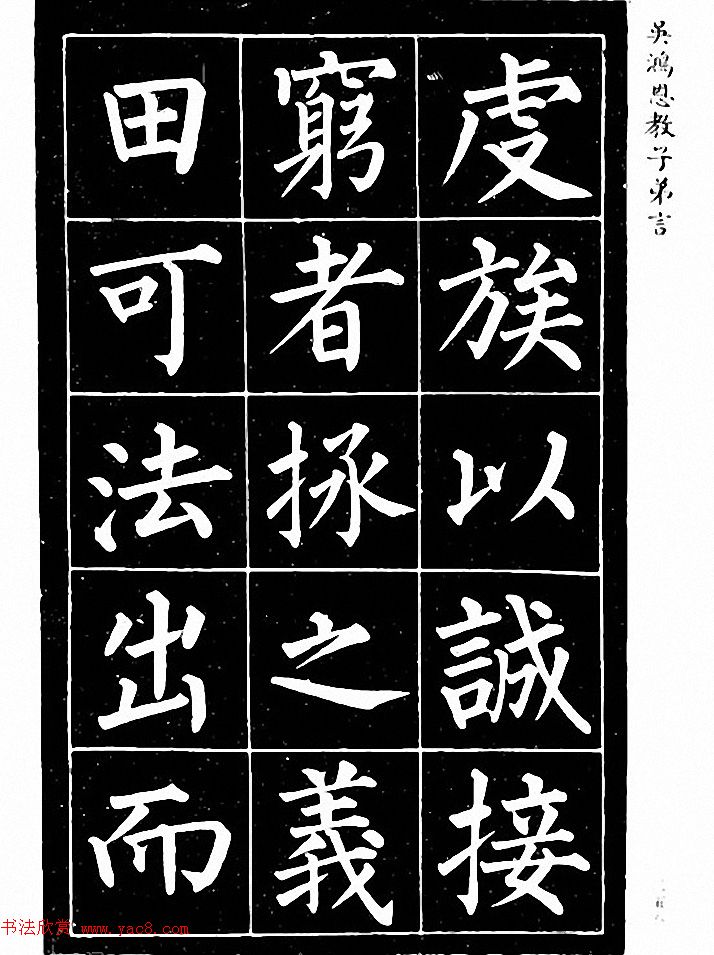 吳鴻恩教子弟言
處族以誠接
窮者拯之義
田可法出而
书法欣赏 www.yac8.com